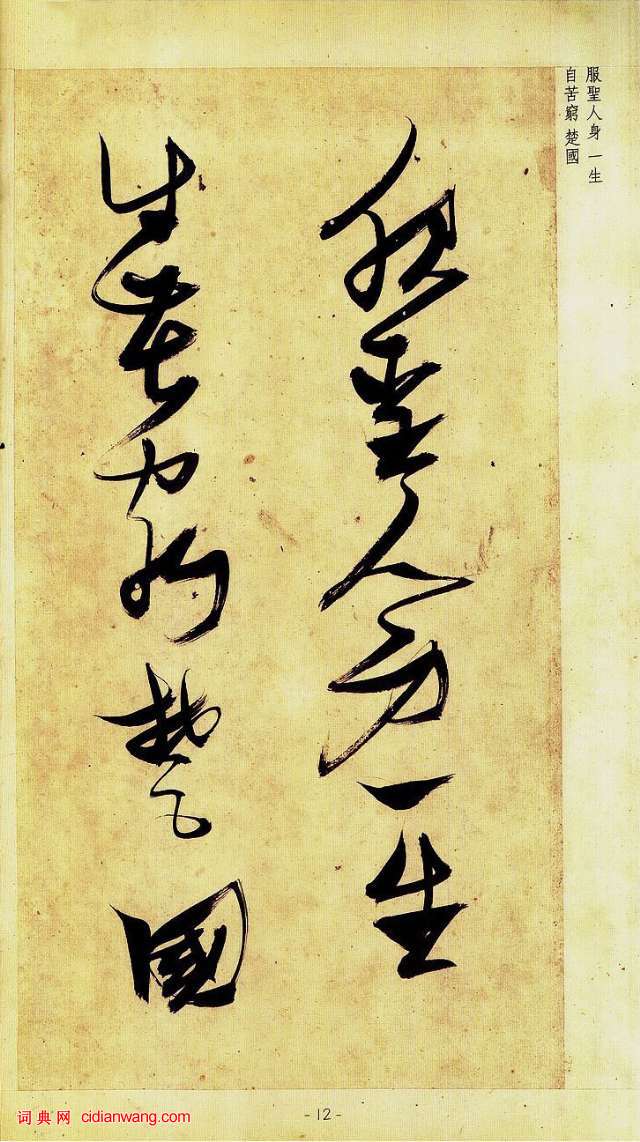 服聖人身一生
自苦窮 楚國
服聖人身一生
自苦窮楚國
- 12 -
词典网 cidianwang.com